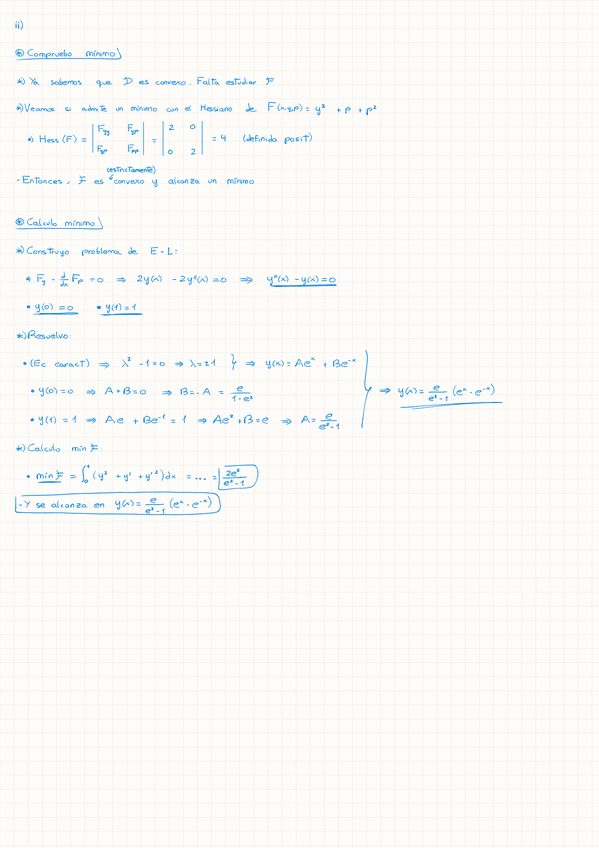 ii)
⊛ Compruebo mínimo
*) Ya sabemos que D es convexo. Falta estudiar F
*) Veamos si admite un mínimo con el Hessiano de F(x,y,p) = y² + p + p²
•) Hess (F) = | F_yy F_yp ; F_yp F_pp | = | 2 0 ; 0 2 | = 4 (definida posit)
(estrictamente)
- Entonces, F es convexo y alcanza un mínimo
⊛ Calculo mínimo
*) Construyo problema de E-L:
* F_y - d/dx F_p = 0 ⇒ 2y(x) - 2y''(x) = 0 ⇒ y''(x) - y(x) = 0
• y(0) = 0 • y(1) = 1
*) Resuelvo:
• (Ec caract) ⇒ λ² - 1 = 0 ⇒ λ = ±1 } ⇒ y(x) = Ae^x + Be^-x
• y(0) = 0 ⇒ A + B = 0 ⇒ B = -A = e/(1-e²) ⇒ y(x) = e/(e²-1) (e^x - e^-x)
• y(1) = 1 ⇒ Ae + Be^-1 = 1 ⇒ Ae² + B = e ⇒ A = e/(e²-1)
*) Calculo mín F:
• mín F = ∫₀¹ (y² + y' + y'²) dx = ... = 2e²/(e²-1)
- Y se alcanza en y(x) = e/(e²-1) (e^x - e^-x)